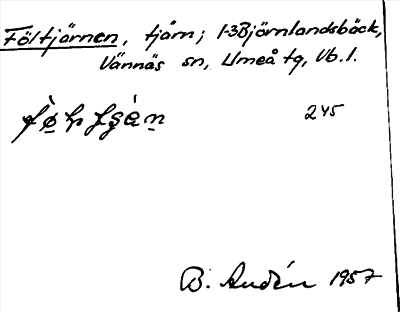 Följtjärnen, tjärn; 1-3 Björnlandsbäck,
Vännäs sn, Umeå tg, Vb. l.
245
B. Audén 1957